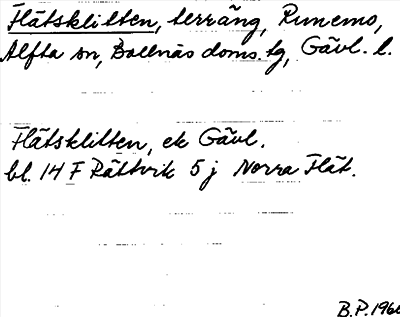 Flätsklitten, terräng, Runemo,
Alfta sn, Bollnäs doms. tg, Gävl. l.
Flätsklitten, ek Gävl.
bl. 14 F Rättvik 5 j Norra Flät.
B.P. 1966